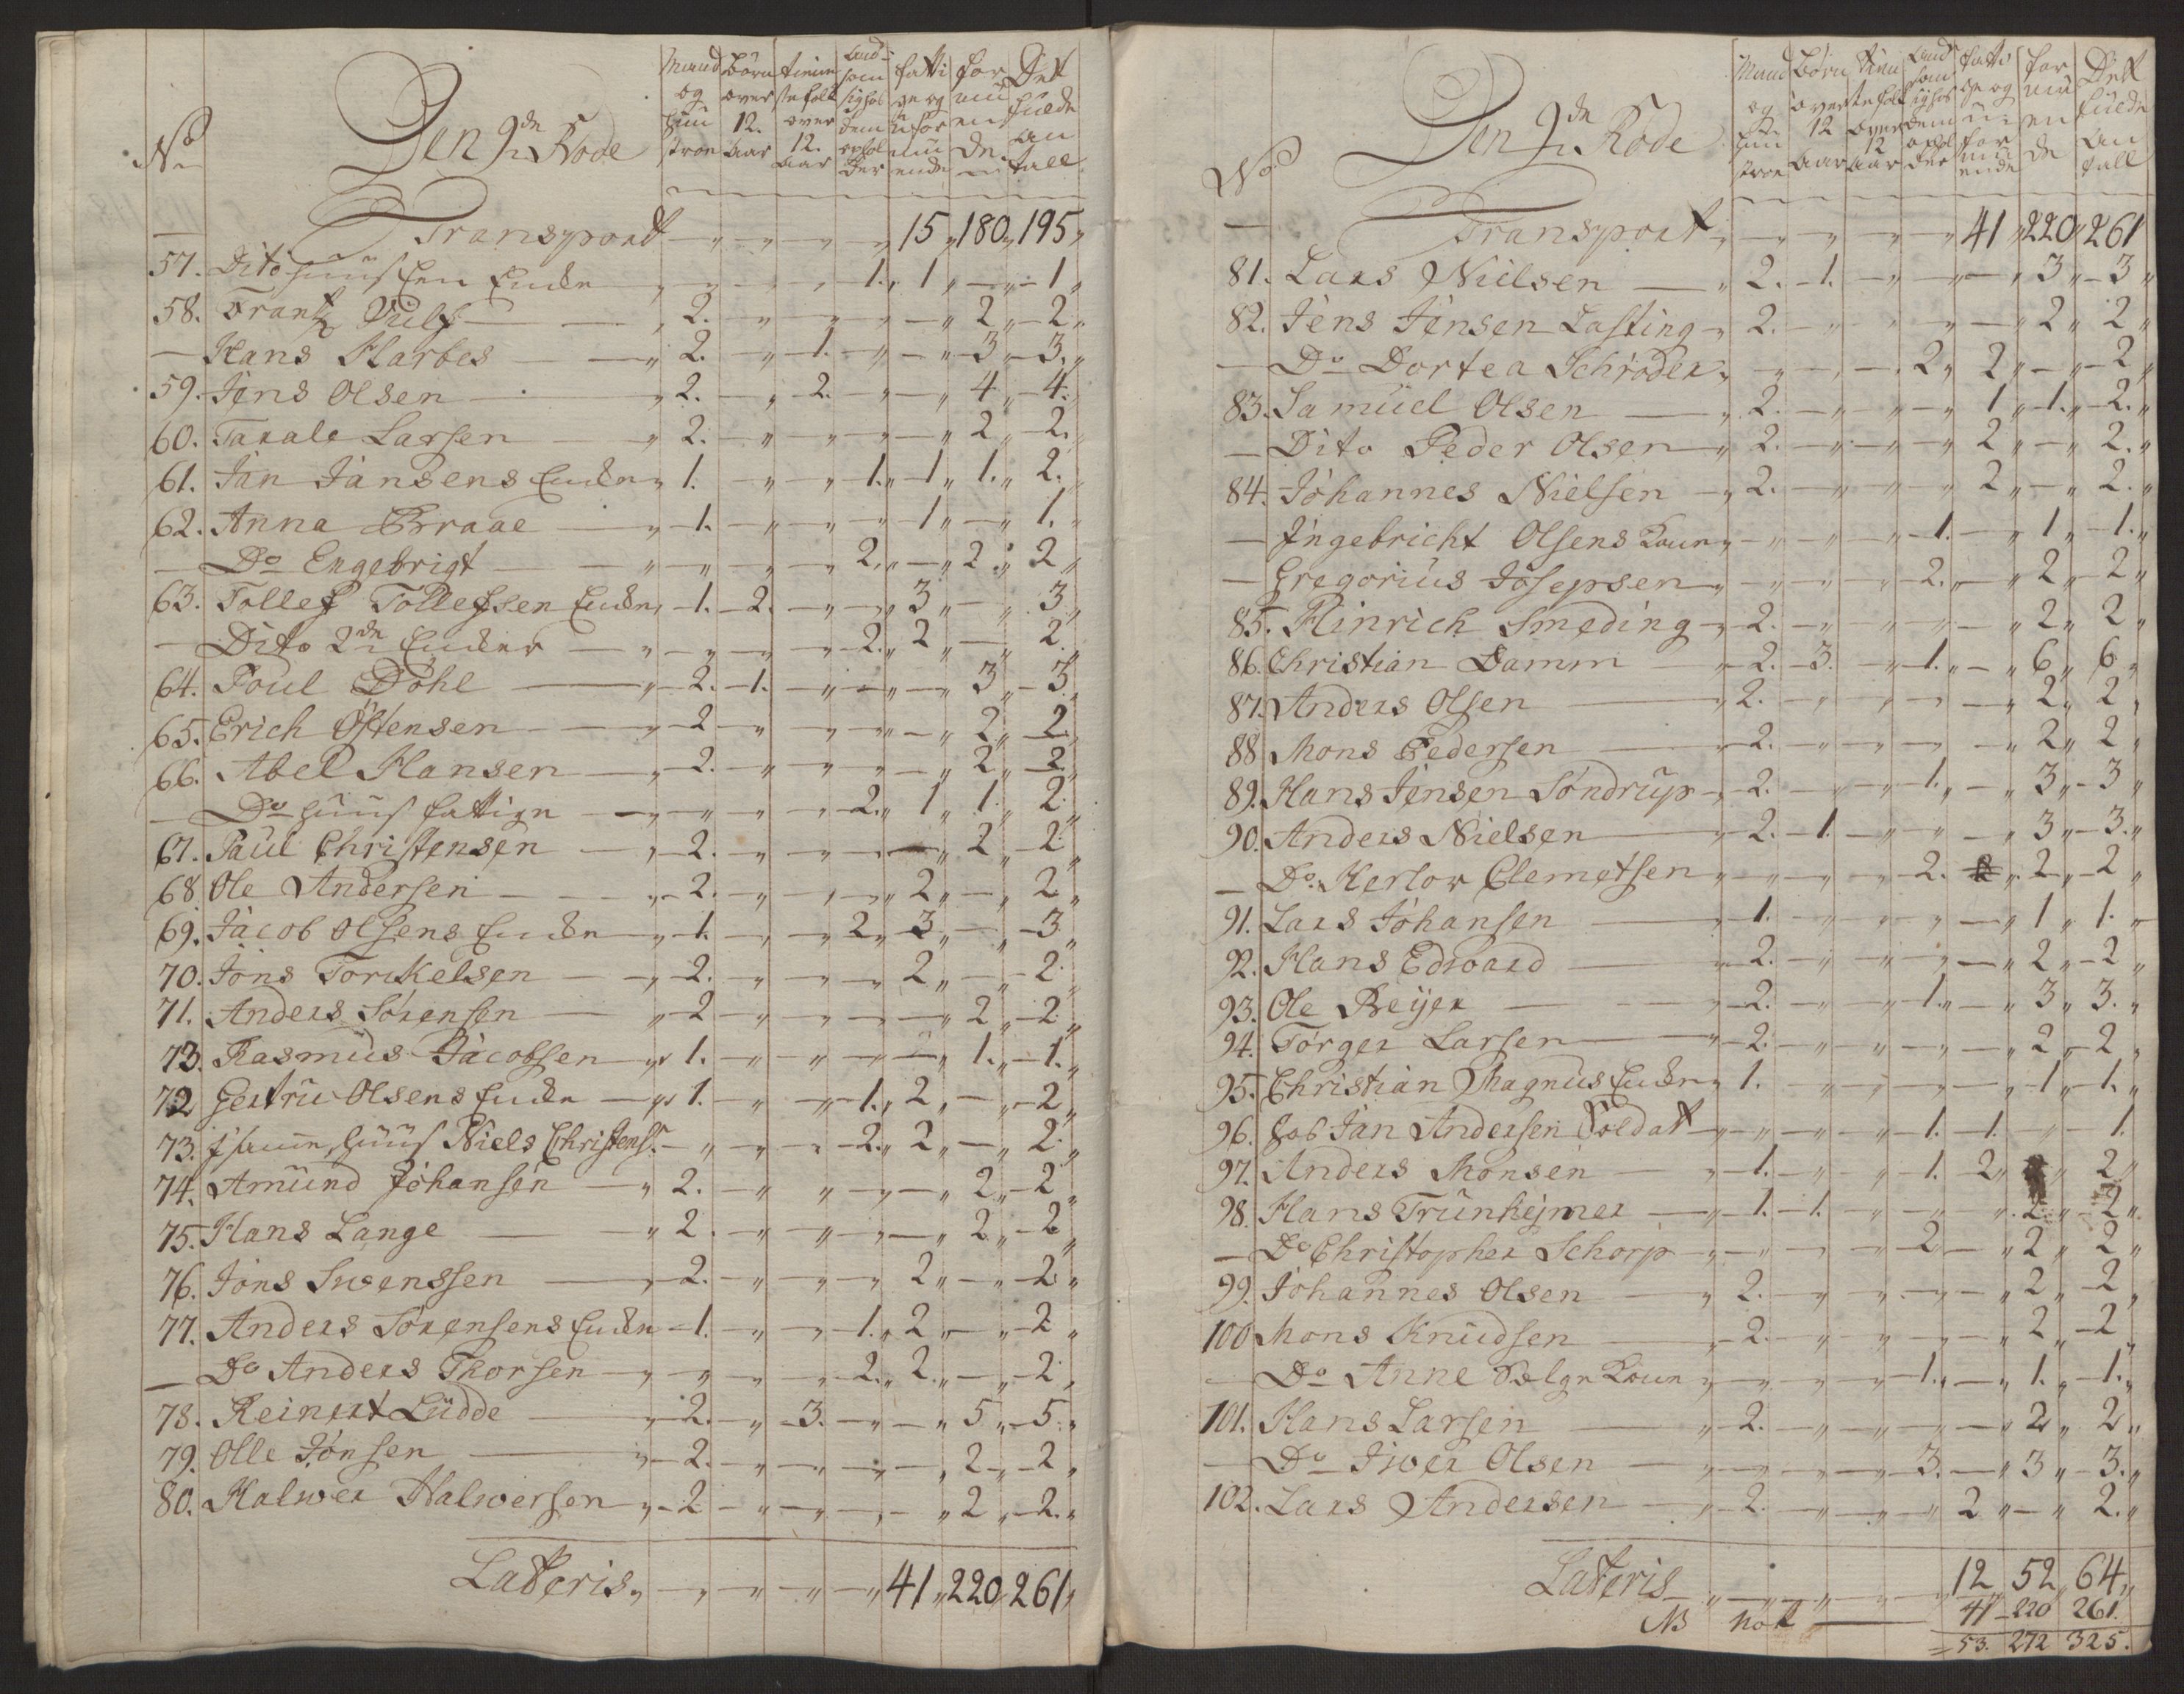 No
Den 2de Rode
Mand og hustroe
Børn over 12. Aar
tieneste folk over 12. Aar
Andre som sig hos dem opholder
fatti ge og uformuende
for muende
Det fulde Antall
— Transport — „ — „ — „ — „ 15 „ 180 „ 195 „
57. Dito huus Een Encke „ — „ — „ 1. „ 1 „ — „ 1 „
58. Frantz Vulf — „ 2. — „ — „ — „ 2 „ 2 „
— Hans Harbes — „ 2. — „ 1. — „ — „ 3 „ 3. „
59. Jens Olsen — „ 2. — „ 2. — „ — „ 4 „ 4. „
60. Tarale Larsen — „ 2. — „ — „ — „ 2 „ 2. „
61. Jan Jansens Encke „ 1. — „ — „ 1. „ 1 „ 1. „ 2. „
62. Anna Braae — „ 1. — „ — „ — 1 „ — „ 1. „
— Do Engebrigt — „ — „ — „ 2. „ — „ 2 „ 2 „
63. Tollef Tollefsen Encke „ 1. — 2. — „ — „ 3 „ — „ 3 „
— Dito 2de Encker — „ — „ — „ 2. „ 2 „ — „ 2. „
64. Poul Döhl — „ 2. — 1. — „ — „ — „ 3 „ 3. „
65. Erich Östensen — „ 2 — „ — „ — „ 2 „ 2 „
66. Abel Hansen — „ 2. — „ — „ — „ 2 „ 2 „
— Do huus fattige — „ — „ — „ 2. „ 1 „ 1. „ 2. „
67. Paul Christensen — „ 2. — „ — „ — „ 2 „ 2 „
68. Ole Andersen — „ 2. — „ — „ — „ 2 „ — „ 2 „
69. Jacob Olsens Encke — „ 1. — „ — „ 2 „ 3 „ — „ 3 „
70. Jöns Torckelsen — „ 2. — „ — „ — „ 2 „ — „ 2. „
71. Anders Sörensen — „ 2 — „ — „ — „ 2 „ 2. „
73. Rasmus Jacobsen — „ 1. — „ — „ — „ 1. „ 1. „
72 Gertru Olsens Encke — „ 1. — „ — „ 1. „ 2 „ — „ 2 „
73. I samme huus Niels Christens. — „ — „ 2. „ 2 „ — „ 2. „
74. Amund Johansen — „ 2. — „ — „ — „ 2 „ 2 „
75. Hans Lange — „ 2. — „ — „ — „ 2 „ 2 „
76. Jöns Swenssen — „ 2. — „ — „ — „ 2 „ — „ 2 „
77. Anders Sörensens Encke — 1. — „ — „ 1. „ 2 „ — „ 2 „
— Do Anders Thorsen — „ — „ — „ 2. „ 2. „ — „ 2 „
78. Reinert Lüdde — „ 2. — „ 3. — „ — „ 5 „ 5. „
79. Olle Jönsen — „ 2. — „ — „ — „ 2 „ 2 „
80. Halwer Halwersen „ 2 — „ — „ — „ 2 „ 2. „
Lateris. „ — „ — „ — „ 41 „ 220 „ 261 „
No
Den 2de Rode
Mand og hustroe
Børn over 12 Aar
tieneste folk over 12 Aar
Andre som sig hos dem opholder
fatti ge og uformuende
for muende
Det fulde Antall
— Transport „ — „ — „ — „ 41 „ 220 „ 261
81. Lars Nielsen — „ 2. — 1. — „ — „ 3 „ 3 „
82. Jens Jensen Lasting „ 2. — „ — „ — „ 2 „ 2 „
— Do Dortea Schröder „ — „ — „ 2 „ 2 „ — „ 2 „
83. Samuel Olsen — „ 2. — „ — „ — „ 1 „ 1. „ 2. „
— Dito Peder Olsen „ 2. — „ — „ — „ 2 „ — „ 2. „
84. Johannes Nielsen — „ 2. — „ — „ — „ 2 „ — „ 2. „
— Ingebricht Olsens Kone „ — „ — „ 1. — „ 1 „ 1. „
— Gregorius Josepsen „ — „ — „ 2. „ — „ 2 „ 2 „
85. Hinrich Smeding „ 2. — „ — „ — „ 2 „ 2 „
86. Christian Damm — „ 2. — 3. — „ 1. „ — „ 6 „ 6 „
87. Anders Olsen — „ 2. — „ — „ — „ 2 „ 2 „
88 Mons Pedersen — „ 2. — „ — „ — „ 2 „ 2 „
89. Hans Jensen Söndrup „ 2. — „ — „ 1. „ — „ 3 „ 3 „
90. Anders Nielsen — „ 2. — 1. — „ — „ 3 „ 3. „
— Do. Kerlow Clemetsen „ — „ — „ 2. „ 2 „ 2 „
91. Lars Johansen — „ 1. — „ — „ — „ 1 „ 1. „
92. Hans Edward — „ 2. — „ — „ — „ 2 „ 2 „
93. Ole Beijer — „ 2. — „ — „ 1. „ — „ 3 „ 3. „
94. Torger Larsen — „ 2. — „ — „ — „ 2 „ 2 „
95. Christian Magnus Encke „ 1. — „ — „ — „ 1 „ 1. „
96. Hos Jan Andersen Soldat — „ — „ 1. — 1. — „ 1.
97. Anders Monsen — „ 1. — „ — „ 1. 2 „ „ 2 „
98. Hans Trunhejmer — „ 1. — 1. — „ — „ 2 „ 2 „
— Do Christopher Schorp — „ — „ 2 — „ 2 „ 2 „
99. Johannes Olsen — „ 2. — „ — „ — „ 2 „ 2 „
100 Mons Knudsen — „ 2. — „ — „ — „ 2 „ 2 „
— Do Anne Kone „ — „ — „ 1. „ — „ 1. „ 1. „
101. Hans Larsen — „ 2. — „ — „ — „ 2 „ 2 „
— Do Iwer Olsen — „ — „ — „ 3. — „ 3 „ 3. „
102. Lars Andersen — „ 2. — „ — „ — „ 2 „ — „ 2. „
Lateris „ — „ — „ — „ 12 „ 52 „ 64 „
NB not — 41 — 220 261.
= 53. 272 325.